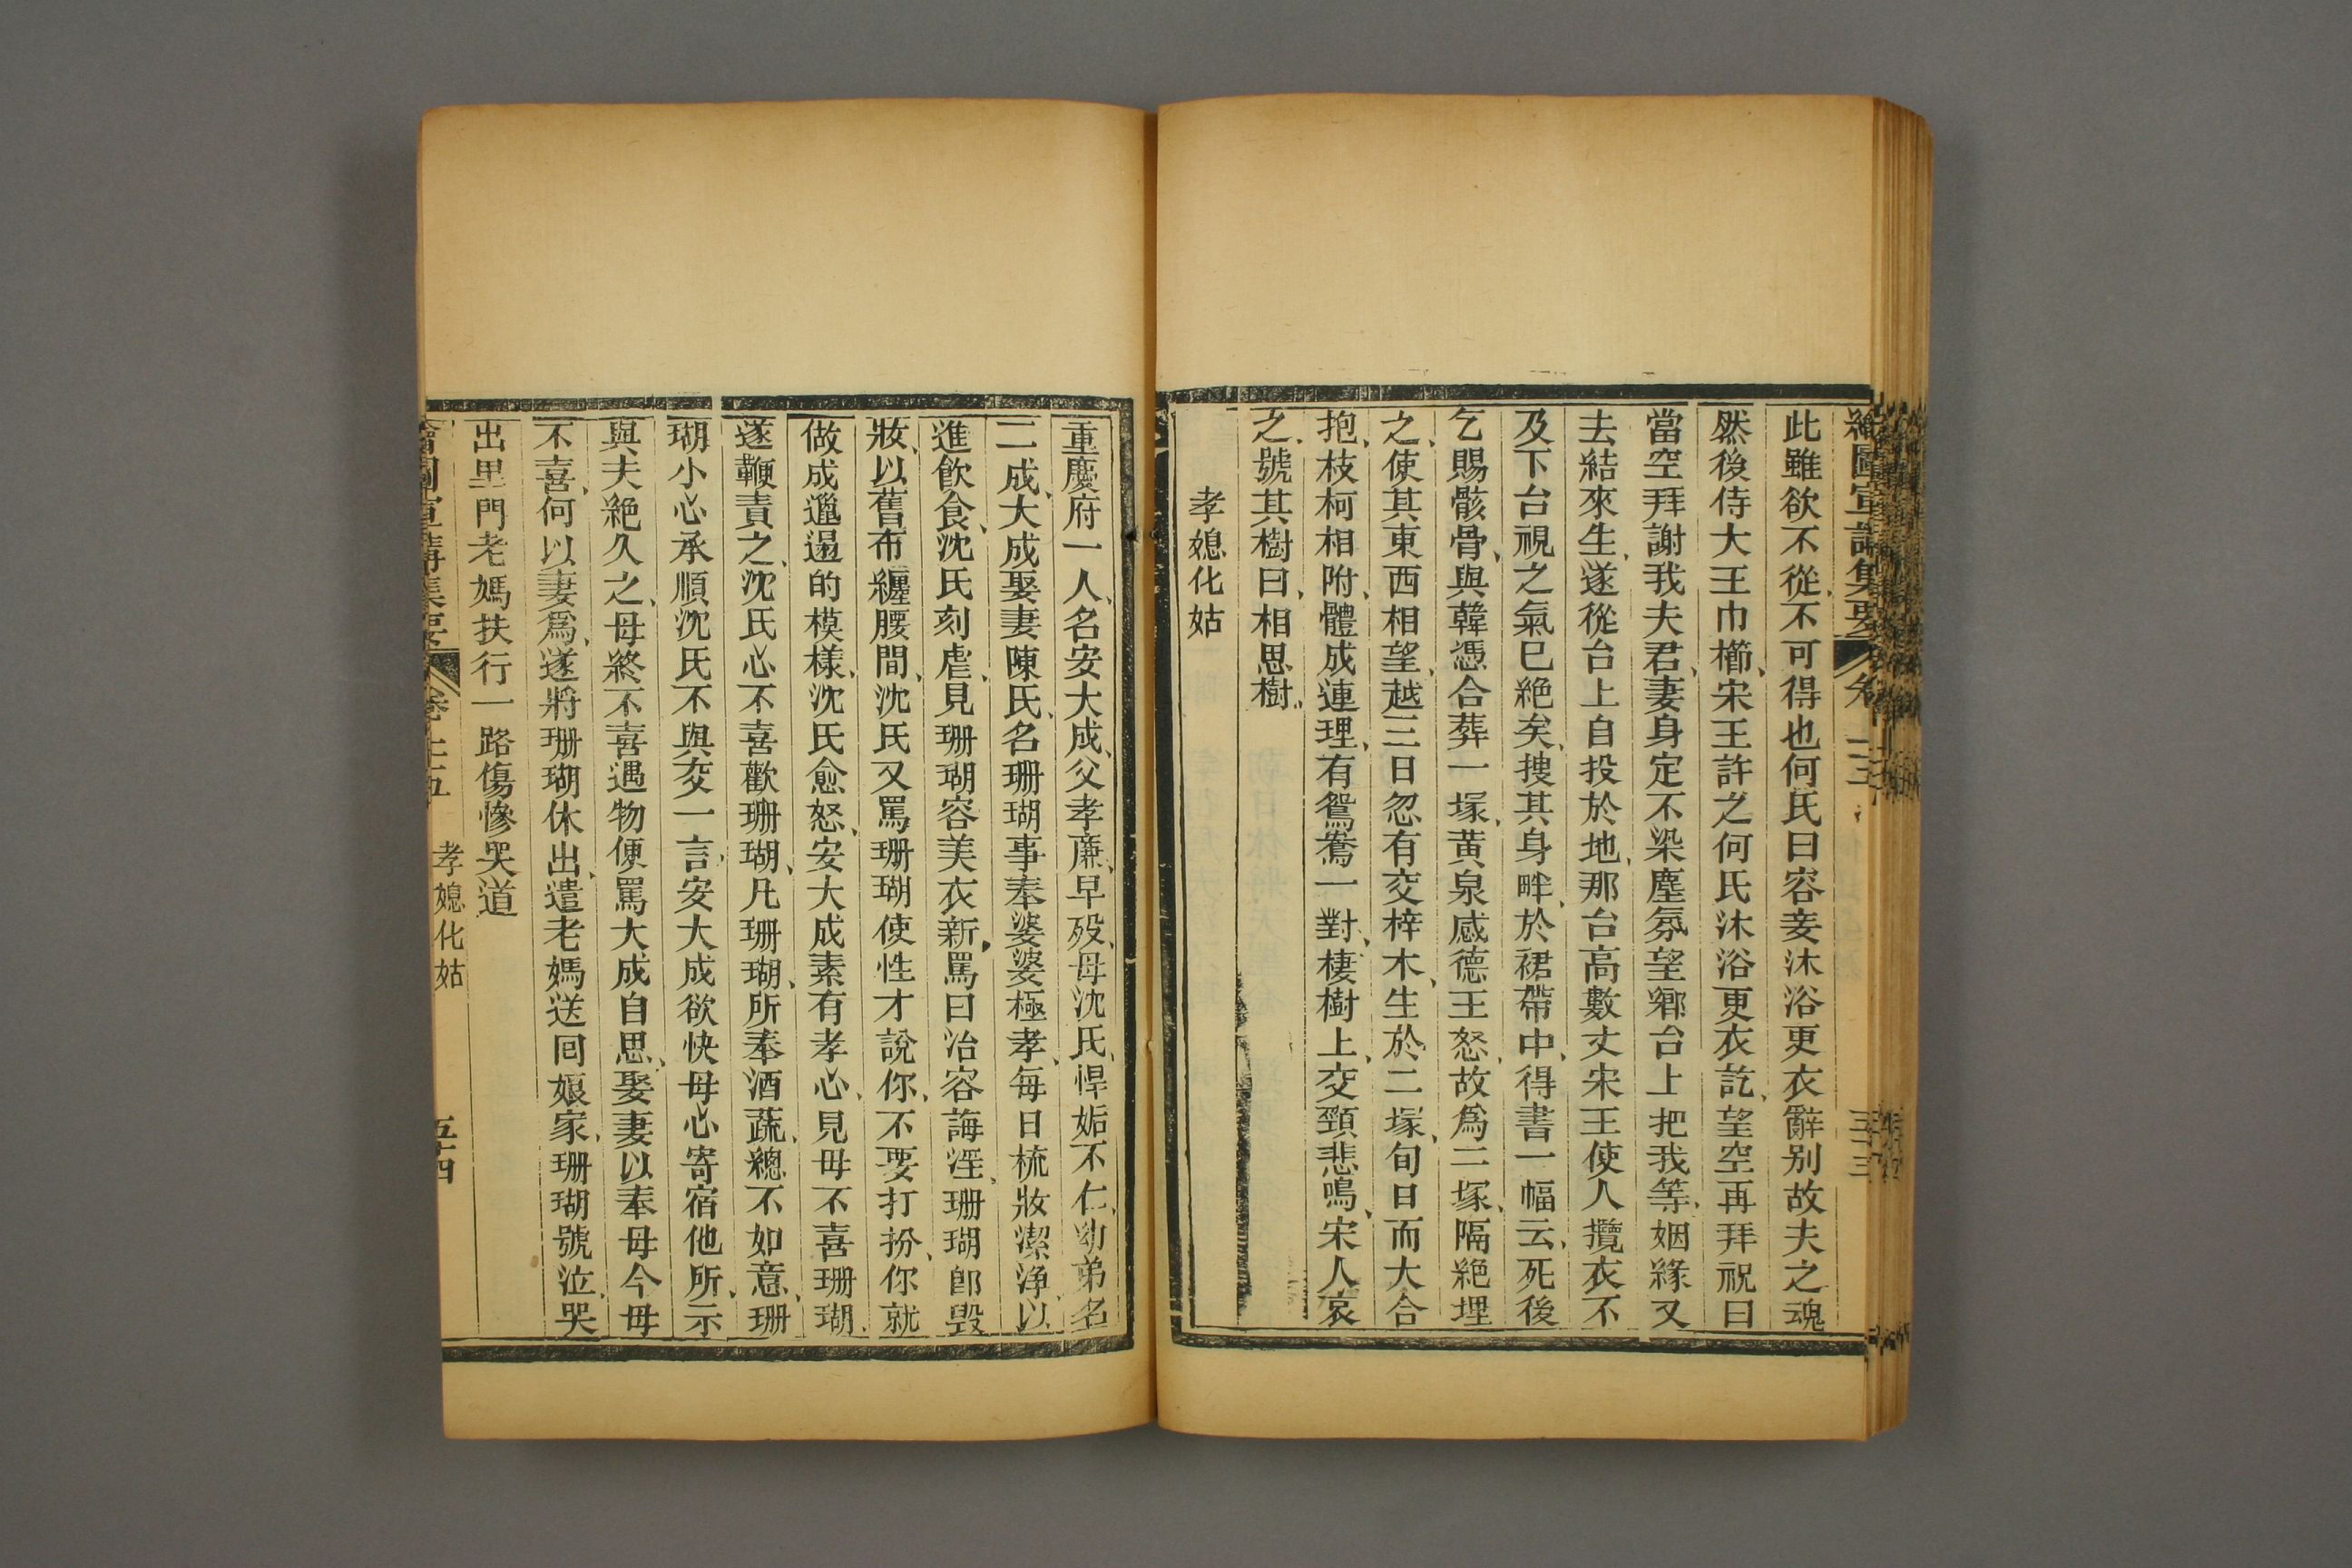 此雖欲不從不可得也何氏曰容妾沐浴更衣辭别故夫之魂
然後侍大王巾櫛宋王許之何氏沐浴更衣訖望空再拜祝曰
當空拜謝我夫君妻身定不染塵氛望鄉台上把我等姻緣又
去結來生遂從台上自投於地那台高數丈宋王使人攬衣不
及下台視之氣已絕矣搜其身畔於裙帶中得書一幅云死後
乞賜骸骨與韓憑合葬一塚黃泉感德王怒故爲二塚隔絕埋
之使其東西相望越三日忽有交梓木生於二塚旬日而大合
抱枝柯相附體成連理有鴛鴦一對棲樹上交頸悲鳴宋人哀
之號其樹曰相思樹
孝媳化姑
重慶府一人名安大成父孝廉早殁母沈氏悍妬不仁幼弟名
二成大成娶妻陳氏名珊瑚事奉婆婆極孝每日梳妝潔淨以
進飲食沈氏刻虐見珊瑚容美衣新罵曰冶容誨淫珊瑚即毁
妝以舊布纏腰間沈氏又罵珊瑚使性才說你不要打扮你就
做成邋遢的模樣沈氏愈怒安大成素有孝心見母不喜珊瑚
遂鞭責之沈氏心不喜歡珊瑚凡珊瑚所奉酒蔬總不如意珊
瑚小心承順沈氏不與交一言安大成欲快母心寄宿他所示
與夫絕久之母終不喜遇物便罵大成自思娶妻以奉母今母
不喜何以妻爲遂將珊瑚休出遣老媽送囘娘家珊瑚號泣哭
出里門老媽扶行一路傷慘哭道
孝媳化姑
五十四